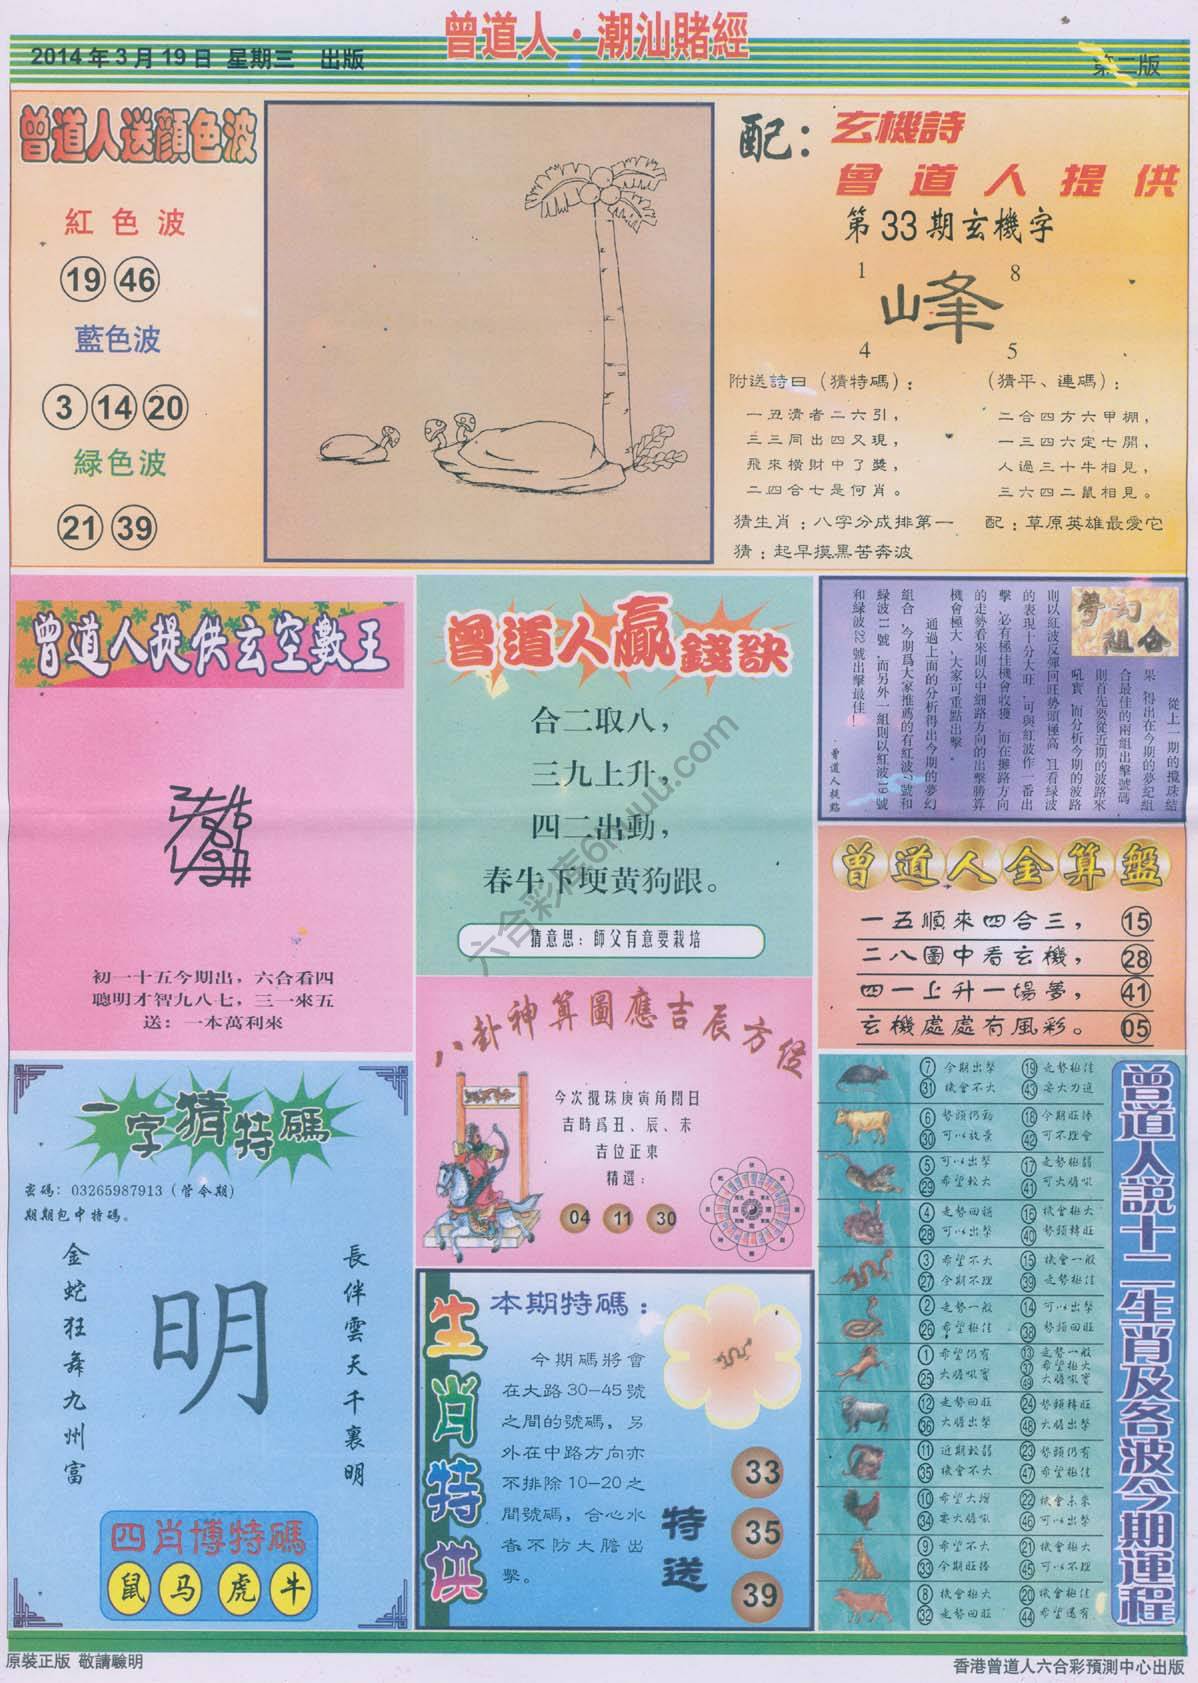 曾道人·潮汕賭經
2014年3月19日 星期三 出版
第二版
曾道人送顔色波
紅色波
19 46
藍色波
3 14 20
緑色波
21 39
配:
玄機詩
曾道人提供
第33期玄機字
1 8
峰
4 5
附送詩曰(猜特碼):
一丑濟者二六引,
三三同出四又現,
飛來橫財中了獎,
二四合七是何肖。
(猜平、連碼):
二合四方六甲棚,
一三四六定七開,
人過三十牛相見,
三六四二鼠相見。
猜生肖:八字分成排第一
配:草原英雄最愛它
猜:起早摸黑苦奔波
曾道人提供玄空數王
初一十五今期出,六合看四
聰明才智九八七,三一來五
送:一本萬利來
曾道人贏錢訣
合二取八,
三九上升,
四二出動,
春牛下埂黄狗跟。
猜意思:師父有意要栽培
夢幻組合
從上一期的攪珠結
果,得出在今期的夢幻組
合最佳的兩組出擊號碼
則首先要從近期的波路來
吼實,而分析今期的波路
則以紅波反彈回旺勢頭極高,且看緑波
的表現十分大旺,可與紅波作一番出
擊,必有極佳機會收獲,而在攤路方向
的走勢看來則以中細路方向的出擊勝算
機會極大,大家可重點出擊.
通過上面的分析得出今期的夢幻
組合,今期爲大家推薦的有紅波7號和
緑波11號,而另外一組則以紅波19號
和緑波22號出擊最佳!
曾道人提點
曾道人金算盤
一五順來四合三, 15
二八圖中看玄機, 28
四一上升一場夢, 41
玄機處處有風彩。 05
八卦神算圖應吉辰方位
今次攪珠庚寅角閉日
吉時爲丑、辰、未
吉位正東
精選:
04 11 30
一字猜特碼
密碼:03265987913(管令期)
期期包中特碼。
金蛇狂舞九州富
明
長伴雲天千裏明
四肖博特碼
鼠 马 虎 牛
生肖特供
本期特碼:
今期碼將會
在大路30-45號
之間的號碼,另
外在中路方向亦
不排除10-20之
間號碼,合心水
者不防大膽出
擊。
特送
33
35
39
曾道人說十二生肖及各波今期運程
7 今期出擊 19 走勢極佳
31 機會不大 43 要大力追
6 勢頭仍勁 18 今期旺捧
30 可以放棄 42 可不理會
5 可以出擊 17 走勢極弱
29 希望較大 41 可大膽吼
4 走勢回頭 16 機會極大
28 可以出擊 40 勢頭轉旺
3 希望不大 15 機會一般
27 今期不理 39 走勢極佳
2 走勢一般 14 可以出擊
26 希望極佳 38 勢頭回旺
1 希望仍有 13 走勢一般
37 希望極大
25 大膽吼實 49 大膽吼實
12 走勢回旺 24 勢頭轉旺
36 大膽出擊 48 大膽出擊
11 近期較弱 23 勢頭仍有
35 機會不大 47 希望極佳
10 希望大增 22 機會未來
34 要大膽吼 46 可以出擊
9 希望不大 21 機會極大
33 今期旺捧 45 可以不理
8 機會極大 20 機會極佳
32 走勢回旺 44 希望還有
六合彩库6huu.com
原裝正版 敬請驗明
香港曾道人六合彩預測中心出版